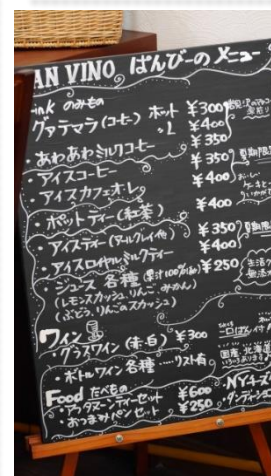 AN VINO ぱんびーの メニュー
ink のみもの
グァテマラ(コーヒー) ホット ¥300
〃 L ¥400
・あわあわミルクコーヒー ¥350
・アイスコーヒー ¥350 夏期限
・アイスカフェオーレ ¥400
・ホットティー(紅茶) ¥400
・アイスティー(アールグレイ他) ¥350 夏期限
・アイスロイヤルミルクティー ¥400
・ジュース 各種(果汁100%他) ¥250
(レモンスカッシュ りんご みかん)
(ぶどう、りんごのスカッシュ)
ワイン
・グラスワイン(赤・白) ¥300 一口ぱん付
・ボトルワイン各種……リスト有 国産、北海道
Food たべもの
・アフタヌーンティーセット ¥600 ・NYチーズ
・おつまみパンセット ¥250